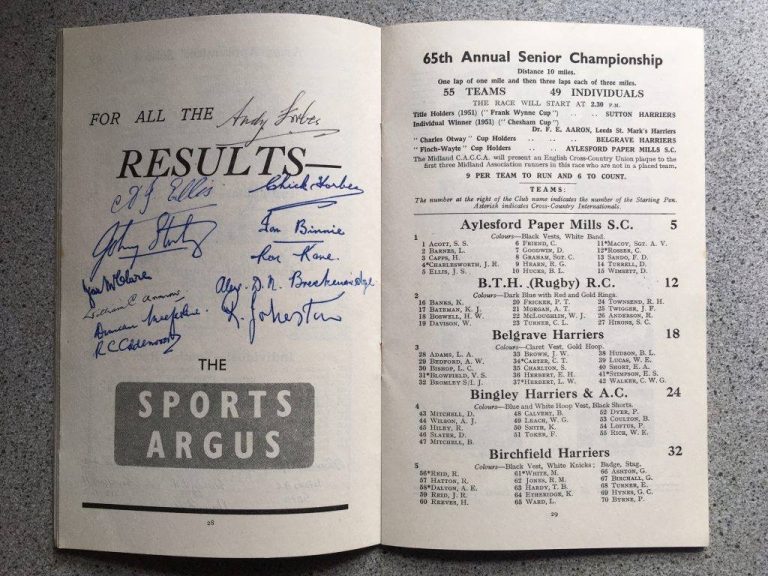 FOR ALL THE
Andy Forbes
RESULTS—
Ellis
Chick Forbes
Johnny
Ian Binnie
Ron Kane
Alex. D. N. Breckenridge
Duncan
R. Johnston
R C Calderwood
THE
SPORTS
ARGUS
28
65th Annual Senior Championship
Distance 10 miles.
One lap of one mile and then three laps each of three miles.
55 TEAMS 49 INDIVIDUALS
THE RACE WILL START AT 2.30 P.M.
Title Holders (1951) ("Frank Wynne Cup") SUTTON HARRIERS
Individual Winner (1951) ("Chesham Cup")
Dr. F. E. AARON, Leeds St. Mark's Harriers
"Charles Otway" Cup Holders BELGRAVE HARRIERS
"Finch-Wayte" Cup Holders AYLESFORD PAPER MILLS S.C.
The Midland C.A.C.C.A. will present an English Cross-Country Union plaque to the
first three Midland Association runners in this race who are not in a placed team.
9 PER TEAM TO RUN AND 6 TO COUNT.
TEAMS:
The number at the right of the Club name indicates the number of the Starting Pen.
Asterisk indicates Cross-Country Internationals.
Aylesford Paper Mills S.C. 5
1 Colours—Black Vests, White Band.
1 ACOTT, S. S. 6 FRIEND, C. 11*MACOY, SGT. A. V.
2 BARNES, L. 7 GOODWIN, D. 12*ROSSER, C.
3 CAPPS, H. 8 GRAHAM, SGT. C. 13 SANDO, F. D.
4*CHARLESWORTH, J. R. 9 HEARN, R. G. 14 TURRELL, D.
5 ELLIS, J. S. 10 HUCKS, B. L. 15 WIMSETT, D.
B.T.H. (Rugby) R.C. 12
2 Colours—Dark Blue with Red and Gold Rings.
16 BANKS, K. 20 FRICKER, P. T. 24 TOWNSEND, R. H.
17 BATEMAN, K. J. 21 MORGAN, A. T. 25 TWIGGER, J. F.
18 BOSWELL, H. W. 22 MCLOUGHLIN, W. J. 26 ANDERSON, R.
19 DAVISON, W. 23 TURNER, C. L. 27 HIRONS, S. C.
Belgrave Harriers 18
3 Colours—Claret Vest, Gold Hoop.
28 ADAMS, L. A. 33 BROWN, J. W. 38 HUDSON, B. L.
29 BEDFORD, A. W. 34*CARTER, C. T. 39 LUCAS, W. E.
30 BISHOP, L. C. 35 CHARLTON, S. 40 SHORT, E. A.
31*BLOWFIELD, V. S. 36 HERBERT, E. H. 41*STIMPSON, E. S.
32 BROMLEY S/L J. 37*HERBERT, L. W. 42 WALKER, C. W. G.
Bingley Harriers & A.C. 24
4 Colours—Blue and White Hoop Vest, Black Shorts.
43 MITCHELL, D. 48 CALVERY, B. 52 DYER, P.
44 WILSON, A. J. 49 LEACH, W. G. 53 COULTON, B.
45 HILEY, R. 50 SMITH, K. 54 LOFTUS, P.
46 SLATER, D. 51 TOKER, F. 55 RICH, W. E.
47 MITCHELL, B.
Birchfield Harriers 32
5 Colours—Black Vest, White Knicks; Badge, Stag.
56*REID, R. 61*WHITE, M. 66 ASHTON, G.
57 HATTON, R. 62 JONES, R. M. 67 BIRCHALL, G.
58*DALTON, A. E. 63 HARDY, T. B. 68 TURNER, E.
59 REID, J. R. 64 ETHERIDGE, K. 69 HYNES, G. C.
60 REEVES, H. 65 WARD, L. 70 BYRNE, P.
29